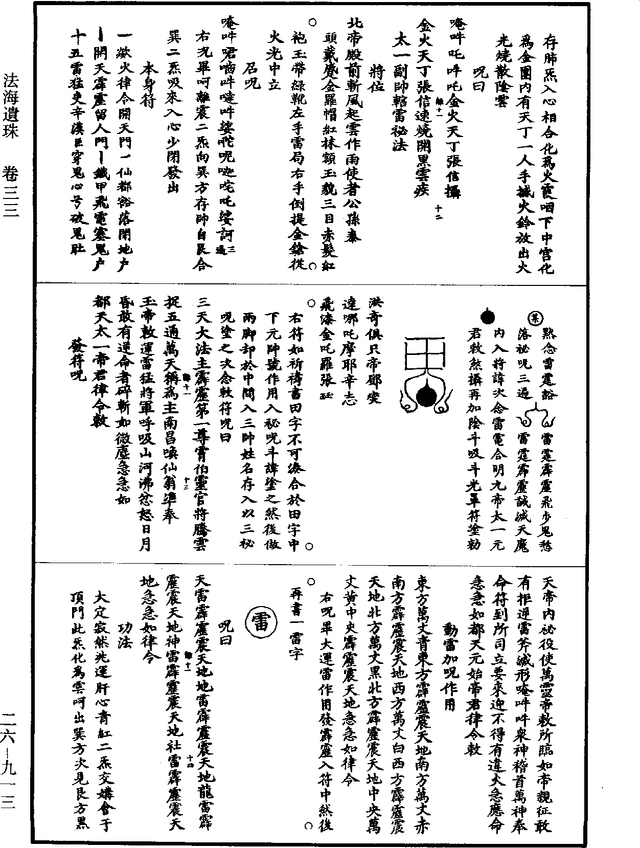 法海遺珠 卷三三
存肺炁入心相合化爲火霞咽下中宮化
爲金團內有天丁一人手搣火鈴放出火
光燒散陰雲
呪曰
唵吽吒呼吒金火天丁張信攝
金火天丁張信速燒開黑雲疾
太一副帥輅雷祕法
將位
北帝殿前斬風起雲作雨使者公孫泰
頭戴慶金羅帽紅抹額玉貌三目赤髮紅
袍玉帶綠靴左手雷局右手倒提金鎗從
火光中立
召呪
右呪畢呵離震二炁向巽方存帥自艮合
巽二炁吸來入心少閉發出
本身符
一歘火律令開天門丶仙都豁落閉地戶
丨開天霹靂留人門丨鐵甲飛電塞鬼戶
十五雷猛吏辛漢臣穿鬼心号破鬼肚
黙念雷霆豁
落祕呪三通
雷霆霹靂飛步鬼愁
雷霆霹靂誠滅天魔
內入將諱次念雷電合明九帝太一元
君敕煞攝再加陰斗吸斗光罩符塗勑
洪奇俱只帝鄧燮
達哪吒摩耶辛志
飛漆金吒羅張玨
右符如祈禱書田字不可湊合於田字中
下元帥號作用入祕呪斗諱塗之然後做
兩脚却於中間入三帥姓名存入以三祕
呪塗之次念敕符呪曰
三天大法主霹靂第一尊霄伯靈官將騰雲
捉五通萬天稱爲主南昌喚仙翁準奉
玉帝敕運雷猛將軍呼吸山河沸忿怒日月
昏敢有逆命者碎斬如微塵急急如
都天太一帝君律令敕
發符呪
天帝內祕役使萬靈帝敕所臨如帝親征敢
有拒逆雷斧滅形唵吽吽衆神稽首萬神奉
命符到所司立要來迎不得有違火急應命
急急如都天元始帝君律令敕
動雷加呪作用
東方萬丈青東方霹靂震天地南方萬丈赤
南方霹靂震天地西方萬丈白西方霹靂震
天地北方萬丈黑北方霹靂震天地中央萬
丈黄中央霹靂震天地急急如律令
右呪畢大運雷作用發霹靂入符中然後
再書一雷字
雷
呪曰
天雷霹靂震天地地雷霹靂震天地龍雷霹
靂震天地神雷霹靂震天地社雷霹靂震天
地急急如律令
功法
大定寂然兆運肝心青紅二炁交媾會于
頂門此炁化爲雲呵出巽方次見艮方黑
二六-九一三